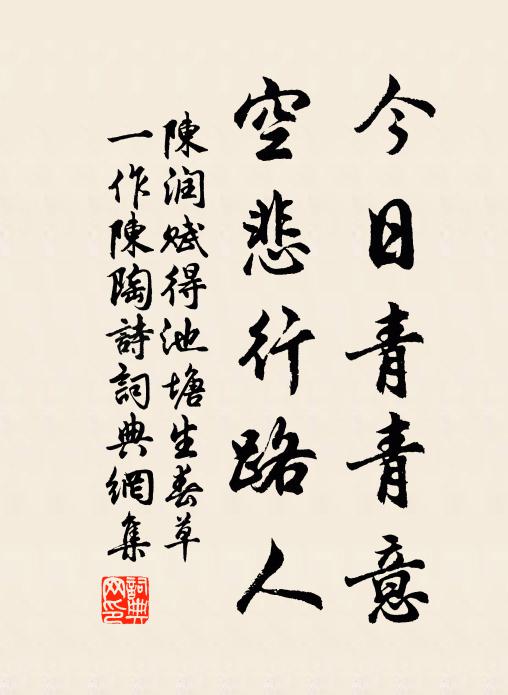 今日青青意
空悲行路人
陳润赋得池塘生春草
一作陳陶詩詞典網集
詞典網印